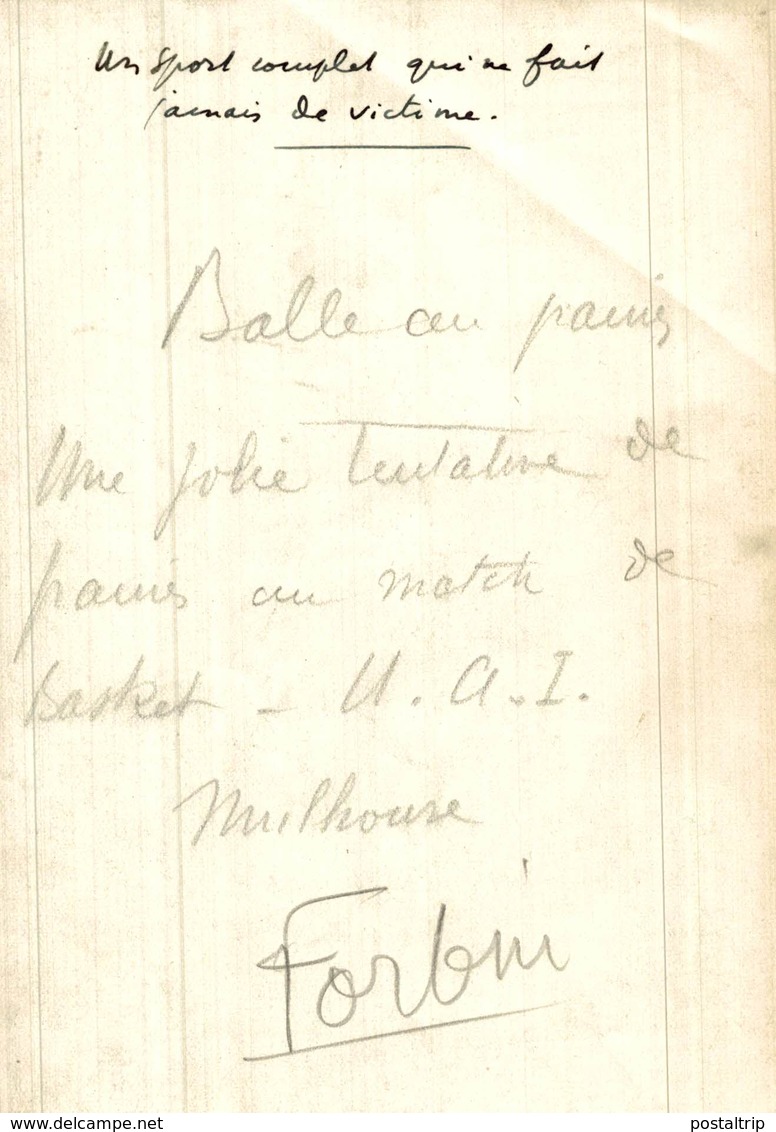 Un sport complet qui ne fait
jamais de victime.
Balle au panier
Une jolie tentative de
panier au match de
Basket - U.A.I.
Mulhouse
Forbin
www.delcampe.net
postaltrip